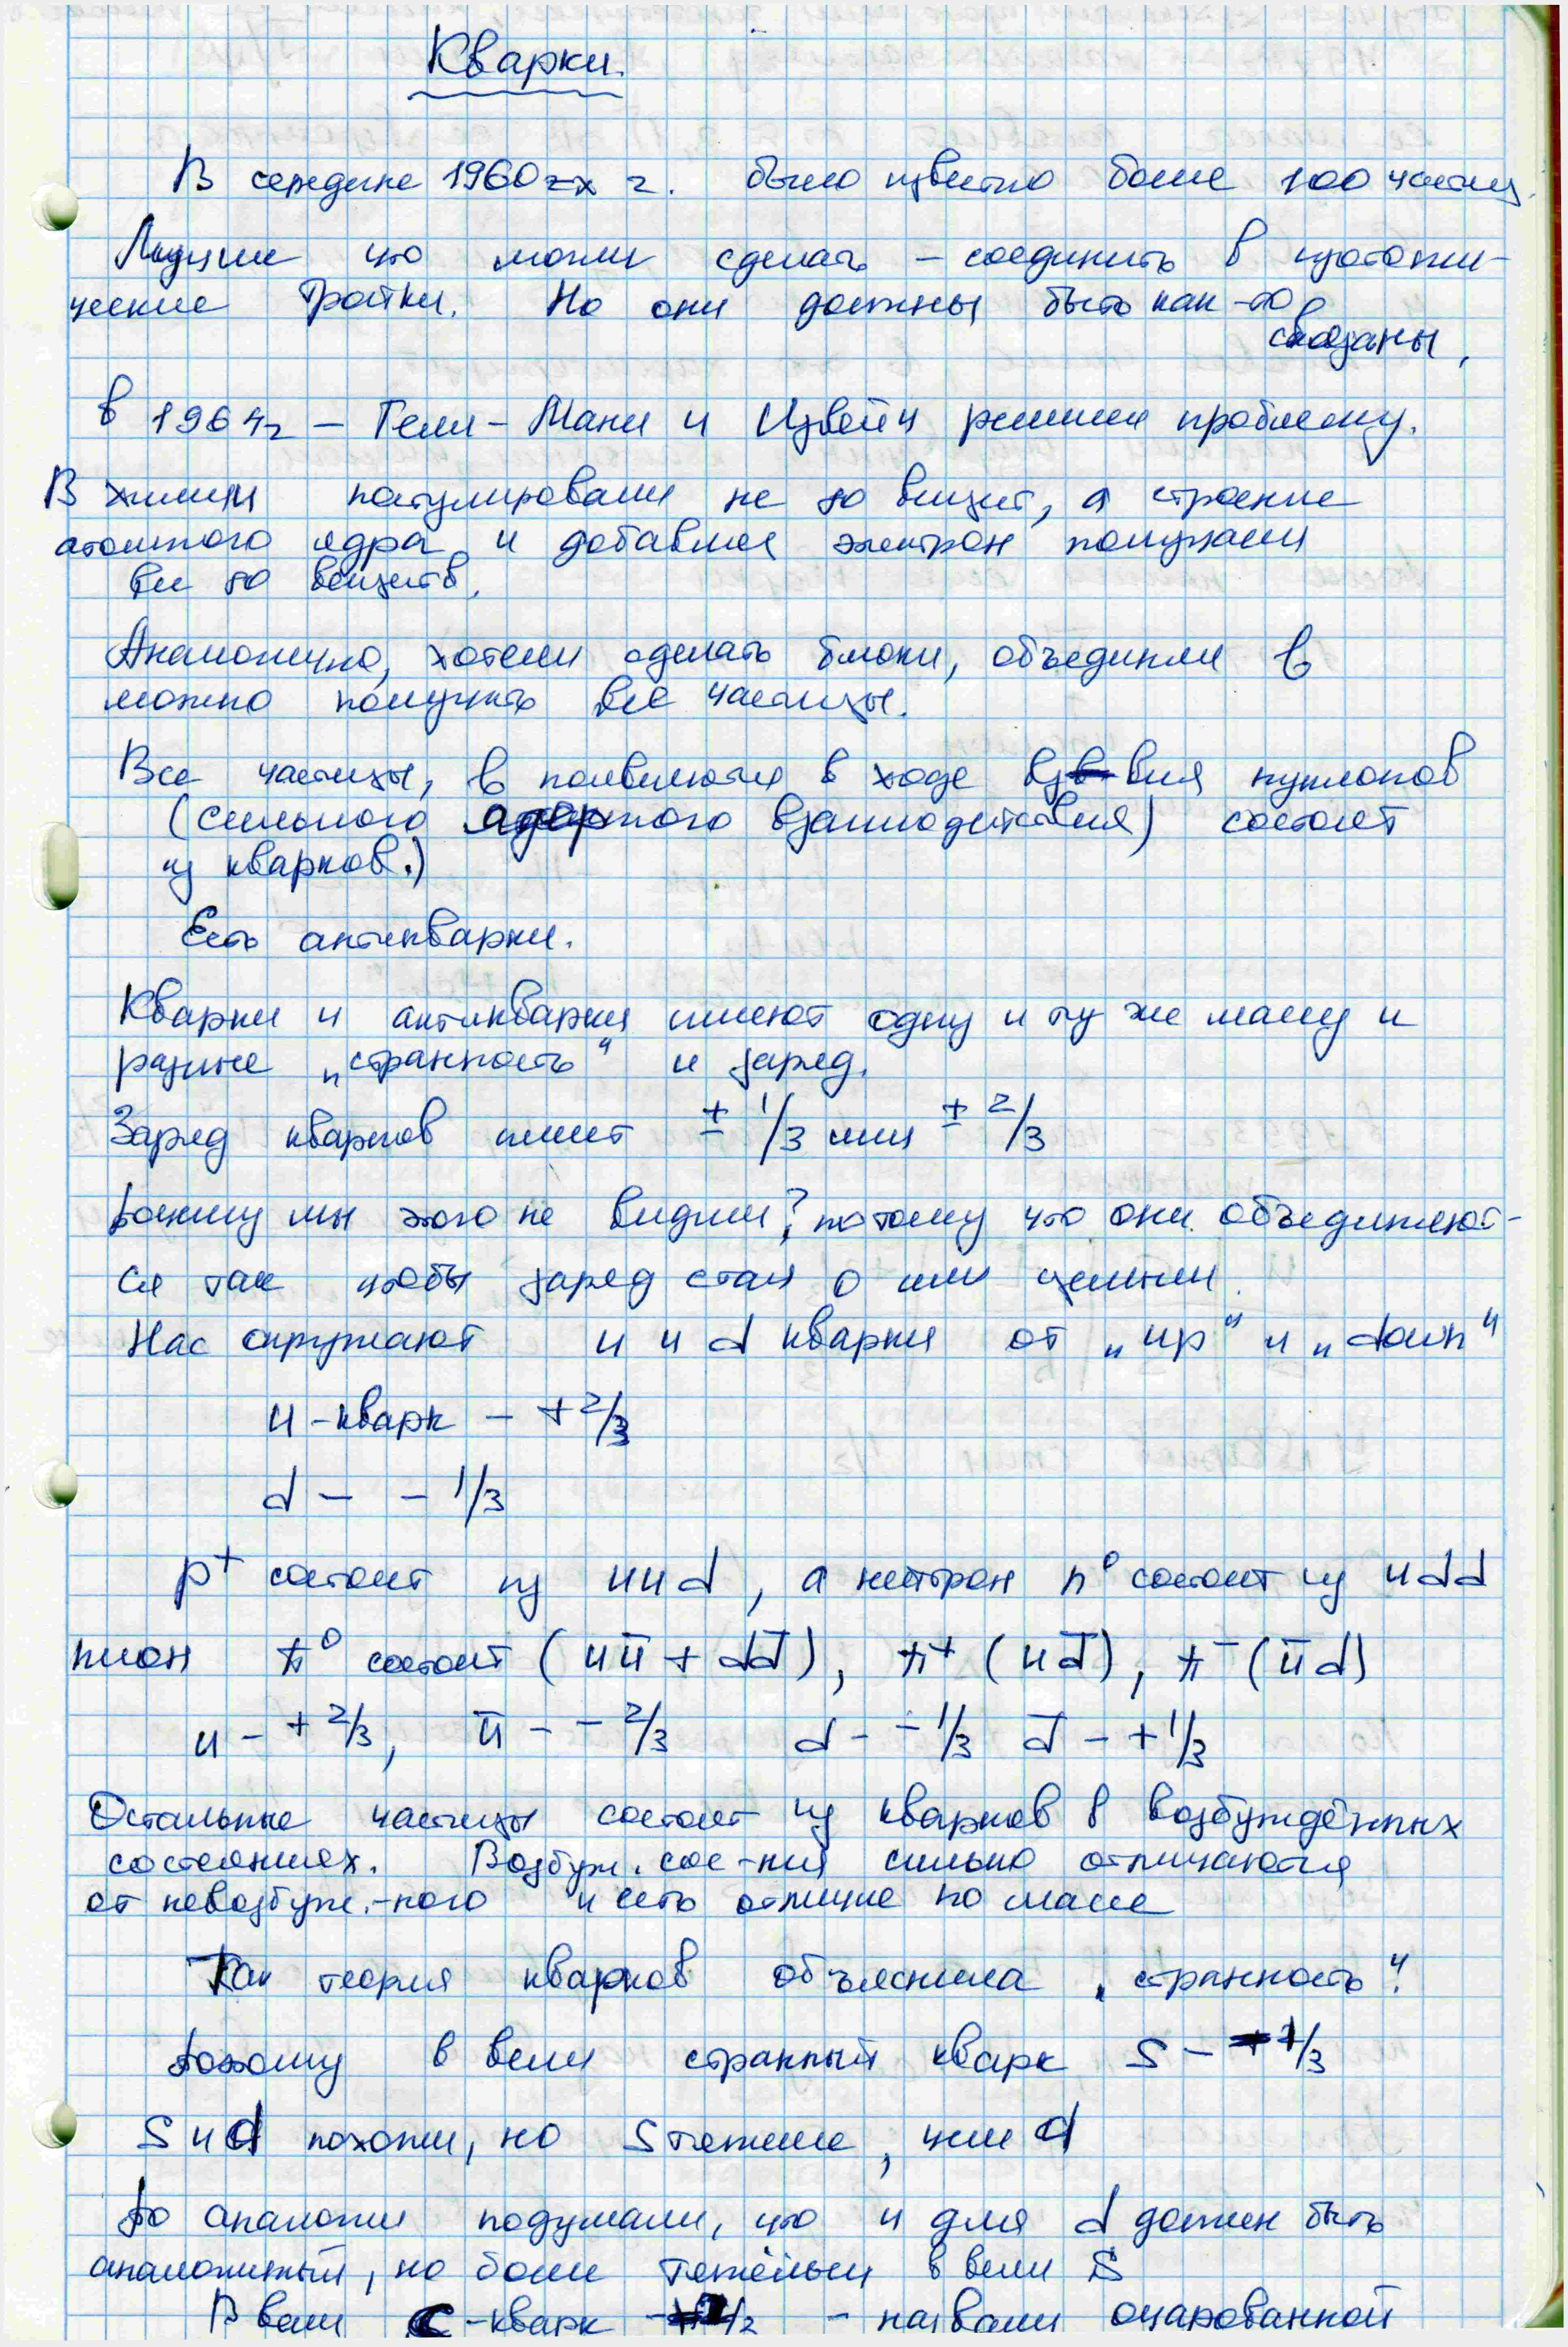 Кварки.
В середине 1960-х г. было известно более 100 частиц.
Лучшее что могли сделать - соединить в изотопи-
ческие тройки. Но они должны быть как-то
связаны.
В 1964г - Гелл-Манн и Цвейг решили проблему.
В химии постулировали не 80 веществ, а строение
атомного ядра и добавляя электрон получали
все 80 веществ.
Аналогично, хотели сделать блоки, объединяя в
можно получить все частицы.
Все частицы, в появляются в ходе вз-вия нуклонов
(сильного ядерного взаимодействия) состоят
из кварков.)
Есть антикварки.
Кварки и антикварки имеют одну и ту же массу и
разные „странность“ и заряд.
Заряд кварков имеет ± 1/3 или ± 2/3
Почему мы этого не видим? потому что они объединяют-
ся так чтобы заряд стал 0 или целым.
Нас окружают u и d кварки от „up“ и „down“
u-кварк - +2/3
d - - 1/3
p⁺ состоит из uud, а нейтрон n⁰ состоит из udd
пион π⁰ состоит (uū + dd̄), π⁺ (ud̄), π⁻ (ūd)
u - + 2/3, ū - - 2/3 d - - 1/3 d̄ - + 1/3
Остальные частицы состоят из кварков в возбуждённых
состояниях. Возбуж. сос-ния сильно отличаются
от невозбуж.-ного и есть отличие по массе
Как теория кварков объяснила „странность“?
Поэтому ввели странный кварк S - 1/3
S и d похожи, но S тяжелее, чем d
По аналогии подумали, что и для d должен быть
аналогичный, но более тяжёлый ввели S
Ввели C-кварк - назвали очарованной